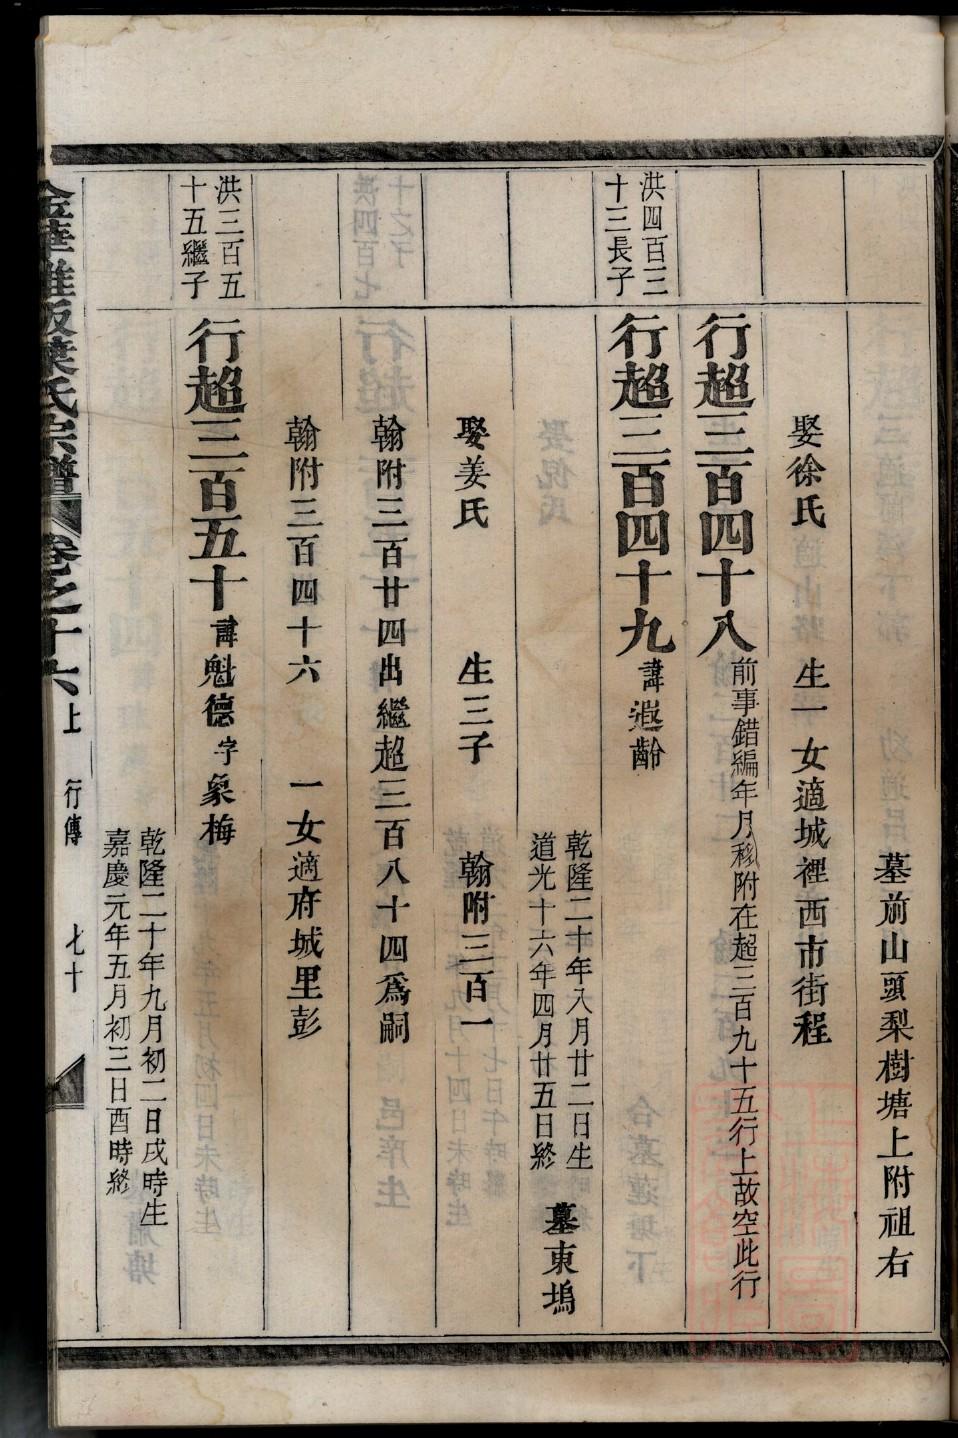 墓前山頭梨樹塘上附祖右
娶徐氏　生一女適城裡西市街程
行超三百四十八　前事錯編年月移附在超三百九十五行上故空此行
洪四百三十三長子
行超三百四十九　諱遐齡
乾隆二十年八月廿二日生
道光十六年四月廿五日終
墓東塢
娶姜氏　生三子　翰附三百一
翰附三百廿四出繼超三百八十四爲嗣
翰附三百四十六　一女適府城里彭
洪三百五十五繼子
行超三百五十　諱魁德字象梅
乾隆二十年九月初二日戌時生
嘉慶元年五月初三日酉時終
葉氏宗譜　卷之十六上　行傳　七十